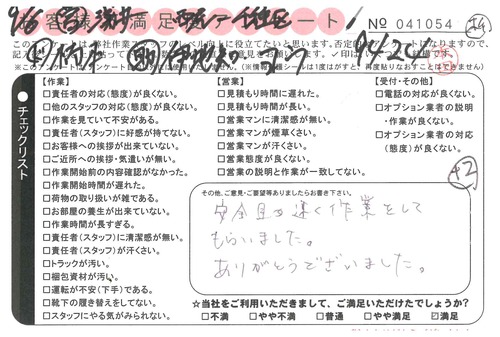 お客様満足 シート
№ 041054
チェックリスト
【作業】
□責任者の対応(態度)が良くない。
□他のスタッフの対応(態度)が良くない。
□作業を見ていて不安がある。
□責任者(スタッフ)に好感が持てない。
□お客様への挨拶が出来ていない。
□ご近所への挨拶・気遣いが無い。
□作業開始前の内容確認がなかった。
□作業開始時間が遅れた。
□荷物の取り扱いが雑である。
□お部屋の養生が出来ていない。
□作業時間が長すぎる。
□責任者(スタッフ)に清潔感が無い。
□責任者(スタッフ)が汗くさい。
□トラックが汚い。
□梱包資材が汚い。
□運転が不安(下手)である。
□靴下の履き替えをしてない。
□スタッフにやる気がみられない。
【営業】
□見積もり時間に遅れた。
□見積もり時間が長い。
□営業マンに清潔感が無い。
□営業マンが煙草くさい。
□営業マンが汗くさい。
□営業態度が良くない。
□営業の説明と作業が一致してない。
【受付・その他】
□電話の対応が良くない。
□オプション業者の説明
・作業が良くない。
□オプション業者の対応
(態度)が良くない。
その他、ご意見・ご要望等ありましたらお書き下さい。
安全且つ速く作業をして
もらいました。
ありがとうございました。
☆当社をご利用いただきまして、ご満足いただけたでしょうか?
□不満 □やや不満 □普通 □やや満足 ☑満足